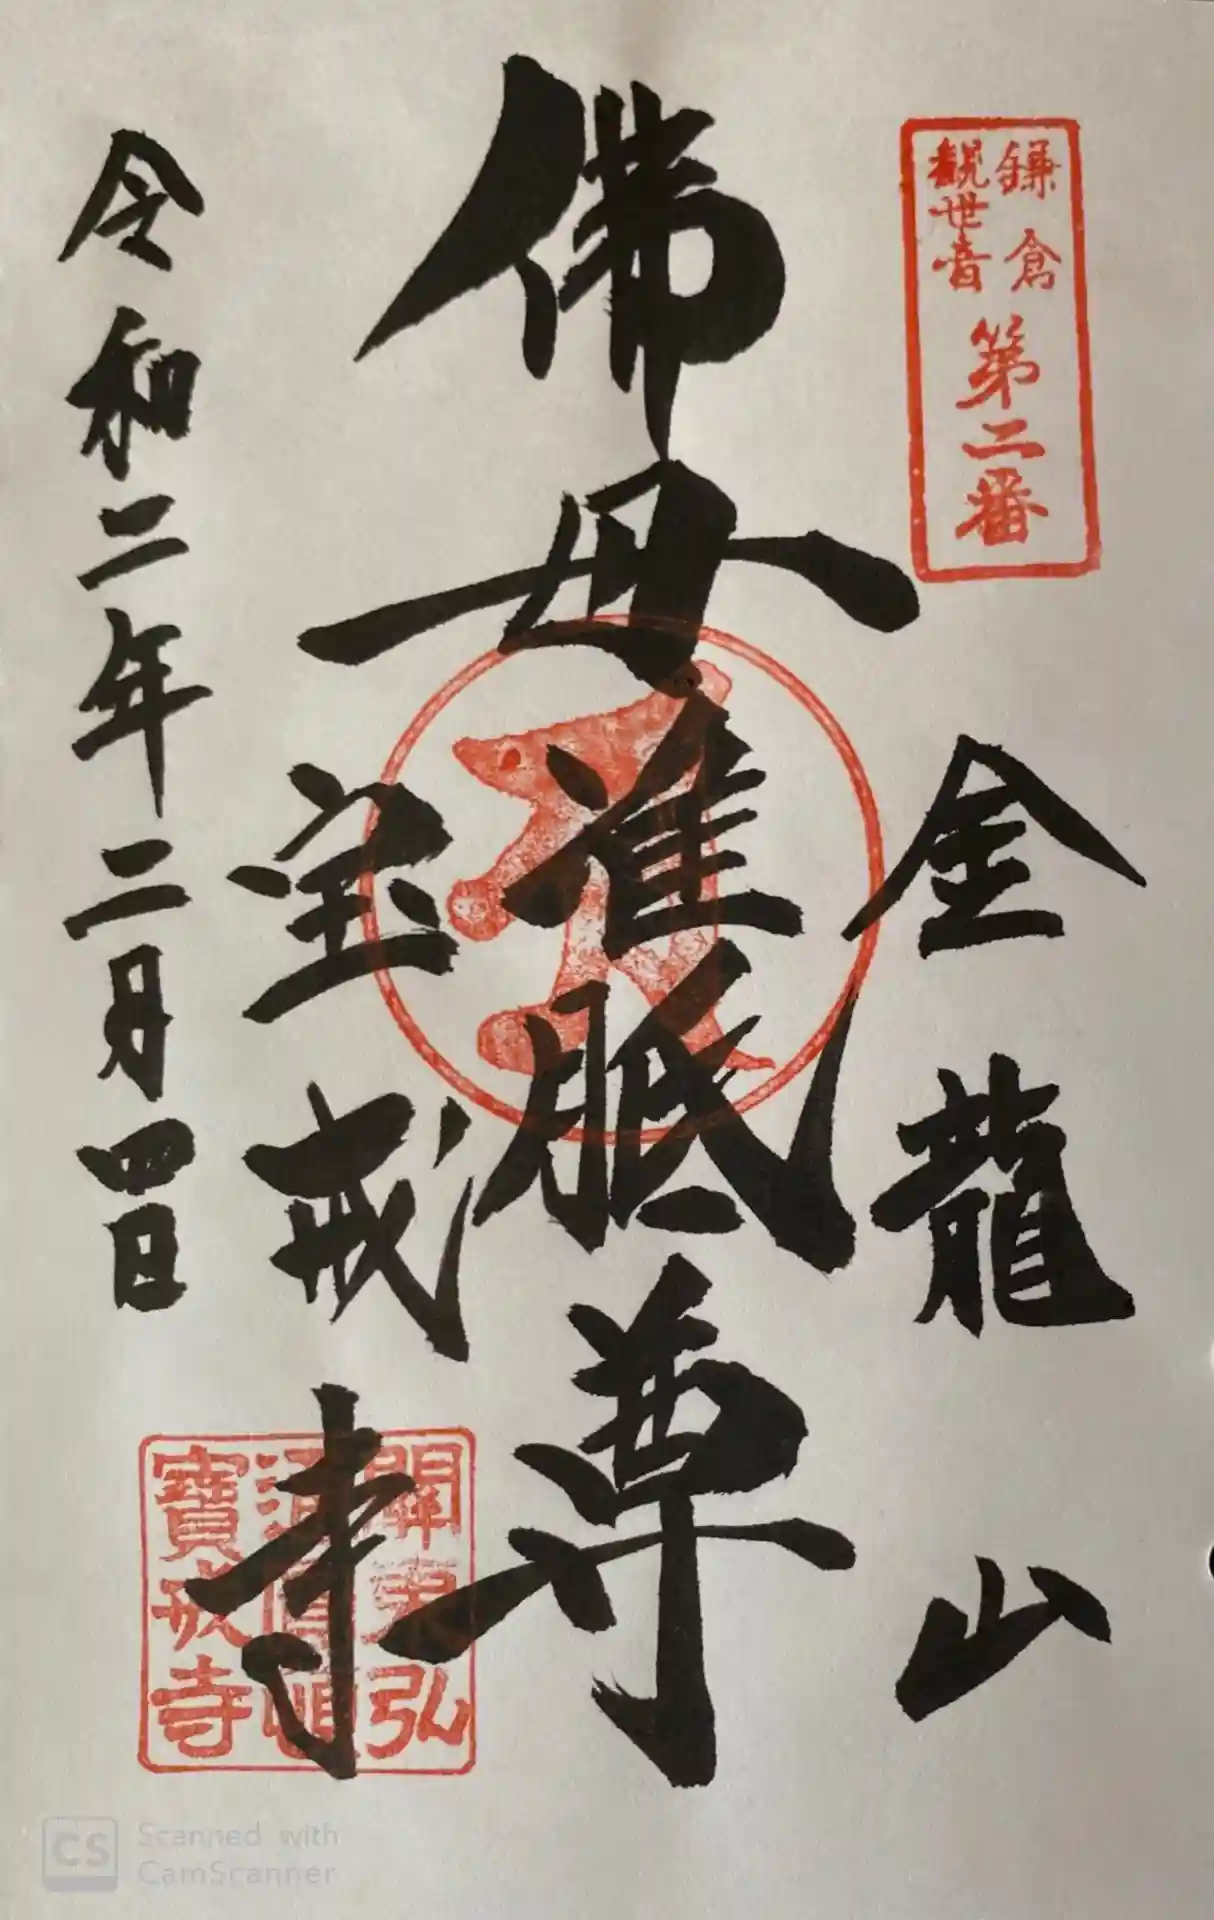 鎌倉
観世音
第二番
金龍山
佛母准胝尊
宝戒寺
令和二年二月四日
寶戒寺
Scanned with
CamScanner